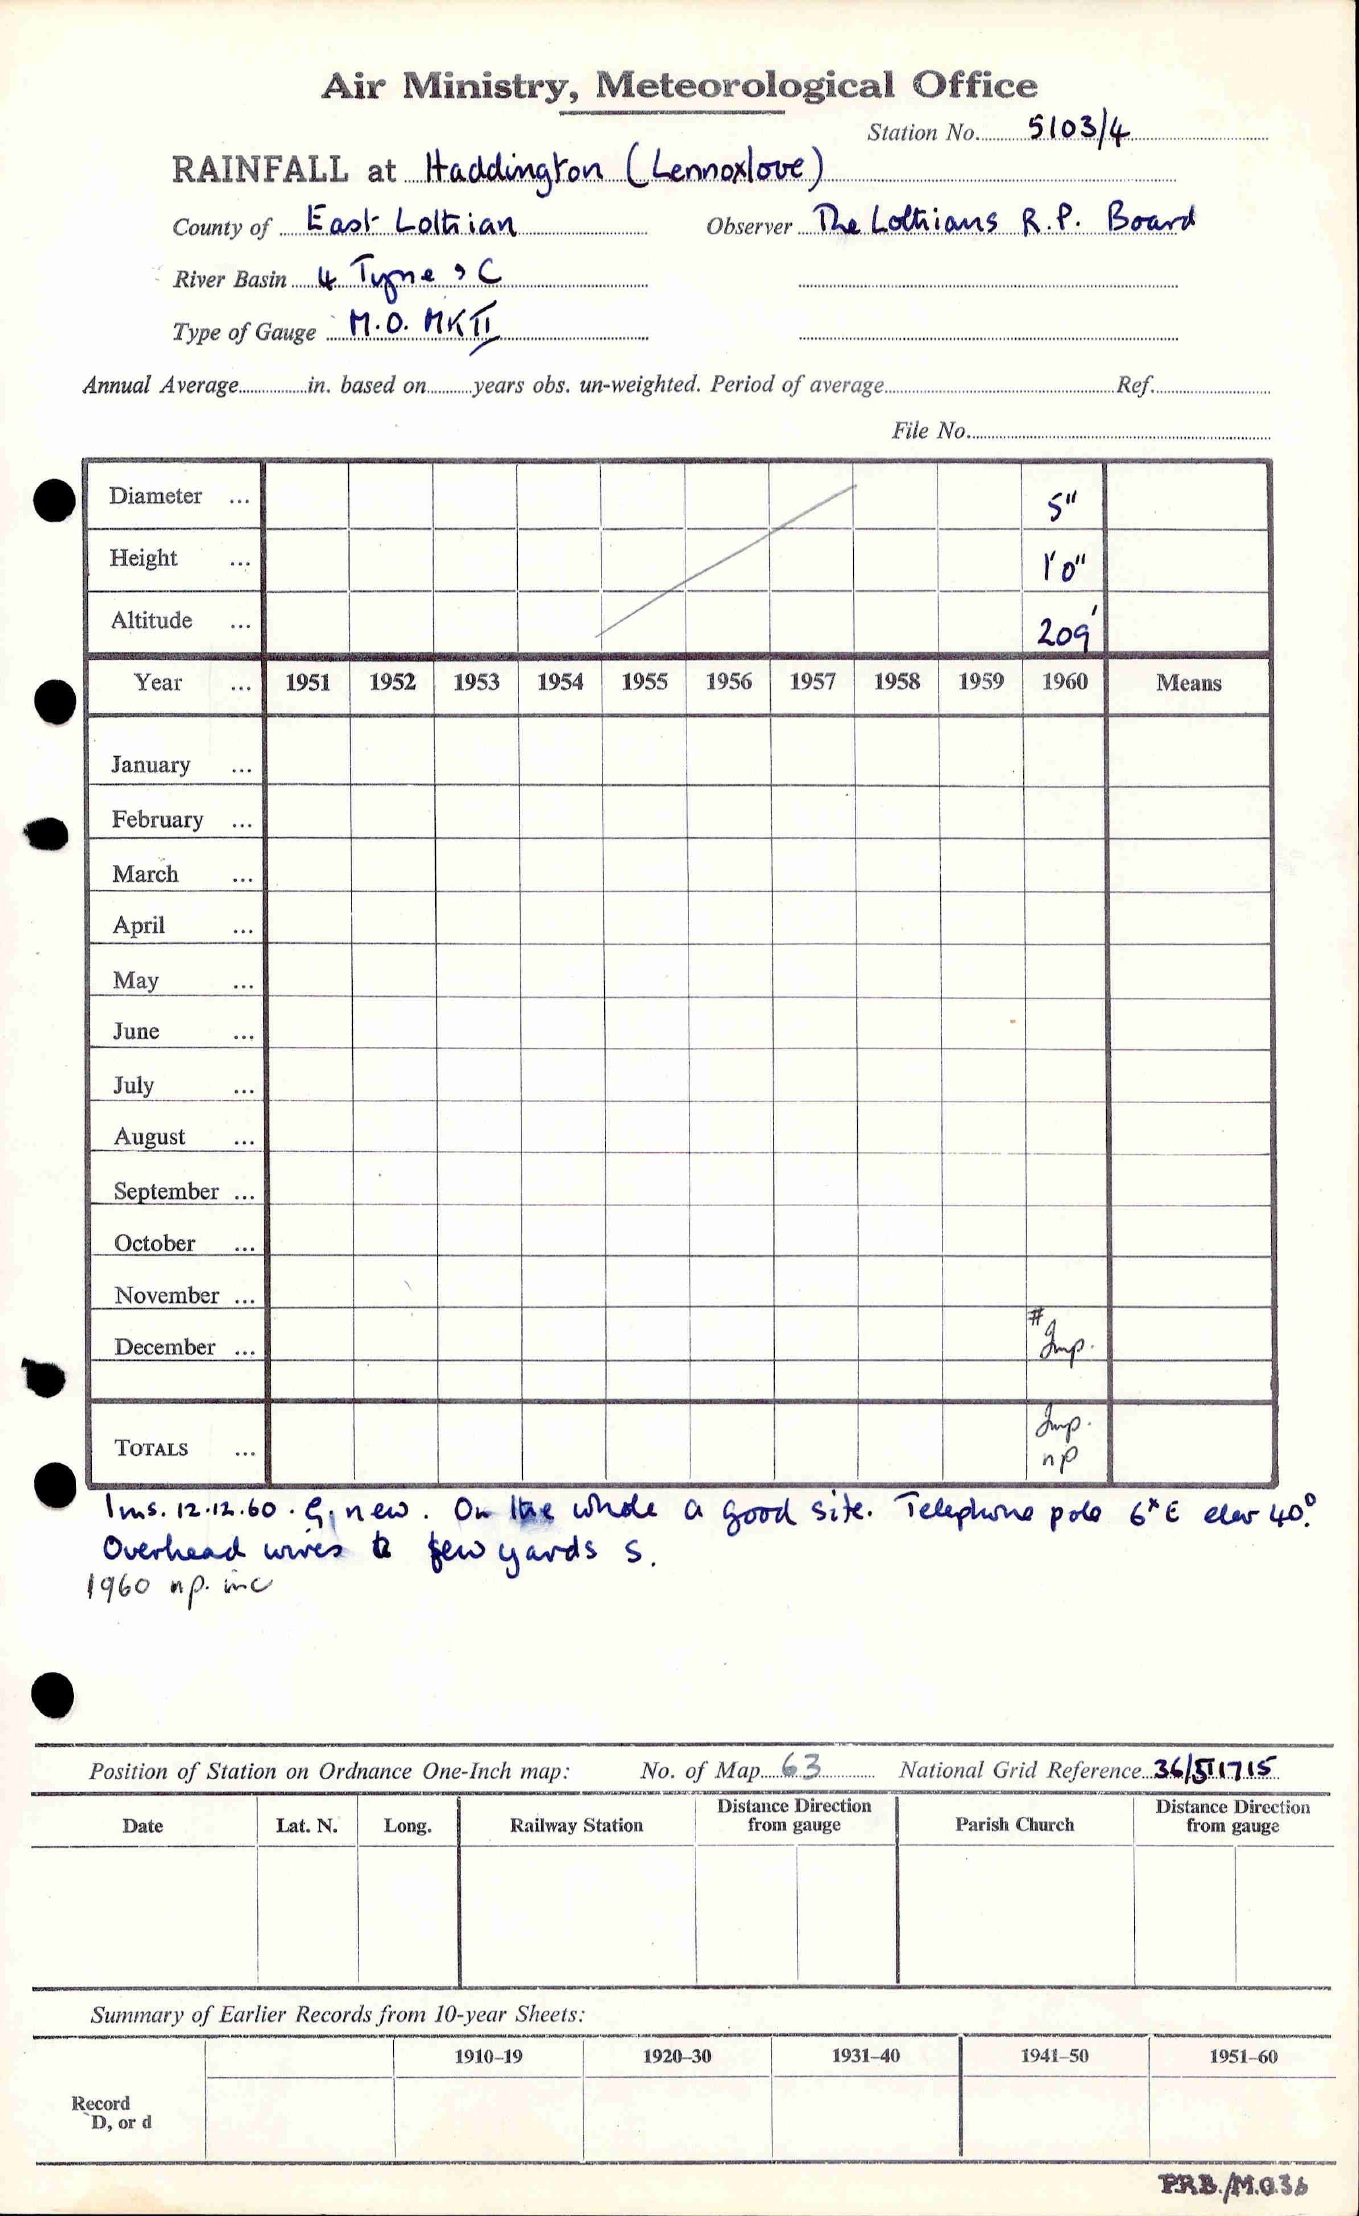 Air Ministry, Meteorological Office
Station No. 5103/4
RAINFALL at Haddington (Lennoxlove)
County of East Lothian Observer The Lothians R.P. Board
River Basin 4 Tyne , C
Type of Gauge M.O. MK II
Annual Average in. based on years obs. un-weighted. Period of average Ref.
File No.
Diameter ... 5"
Height ... 1'0"
Altitude ... 209'
Year ... 1951 1952 1953 1954 1955 1956 1957 1958 1959 1960 Means
January ...
February ...
March ...
April ...
May ...
June ...
July ...
August ...
September ...
October ...
November ...
December ... # Imp.
TOTALS ... Imp. np
Ins. 12.12.60. G, new. On the whole a good site. Telephone pole 6x E elev 40°.
Overhead wires few yards S.
1960 np. inc
Position of Station on Ordnance One-Inch map: No. of Map 63 National Grid Reference 36/511715
Date Lat. N. Long. Railway Station Distance Direction from gauge Parish Church Distance Direction from gauge
Summary of Earlier Records from 10-year Sheets:
1910–19 1920–30 1931–40 1941–50 1951–60
Record
D, or d